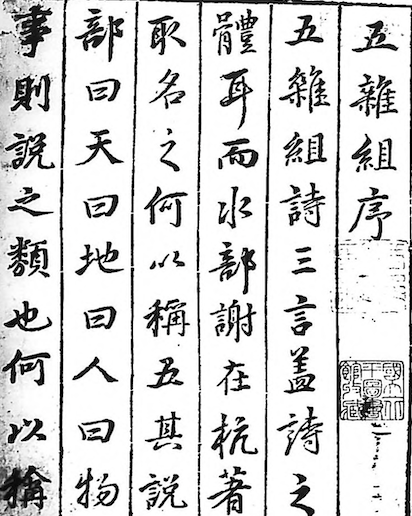 五雜組序
五雜組詩三言盖詩之
體耳而水部謝在杭著
取名之何以稱五其說
部曰天曰地曰人曰物
曰事則說之類也何以稱